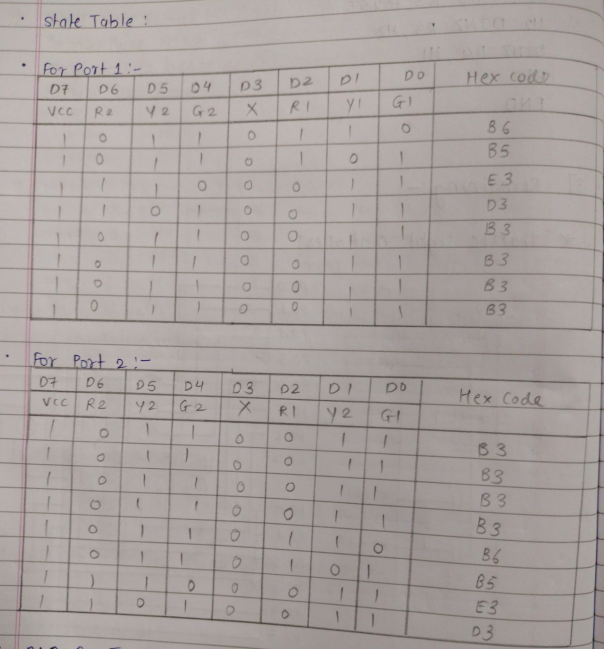 State Table :
For Port 1:-
D7 D6 D5 D4 D3 D2 D1 D0 Hex code
VCC R2 Y2 G2 X R1 Y1 G1
1 0 1 1 0 1 1 0 B6
1 0 1 1 0 1 0 1 B5
1 1 1 0 0 0 1 1 E3
1 1 0 1 0 0 1 1 D3
1 0 1 1 0 0 1 1 B3
1 0 1 1 0 0 1 1 B3
1 0 1 1 0 0 1 1 B3
1 0 1 1 0 0 1 1 B3
For Port 2:-
D7 D6 D5 D4 D3 D2 D1 D0 Hex Code
VCC R2 Y2 G2 X R1 Y2 G1
1 0 1 1 0 0 1 1 B3
1 0 1 1 0 0 1 1 B3
1 0 1 1 0 0 1 1 B3
1 0 1 1 0 0 1 1 B3
1 0 1 1 0 1 1 0 B6
1 0 1 1 0 1 0 1 B5
1 1 1 0 0 0 1 1 E3
1 1 0 1 0 0 1 1 D3